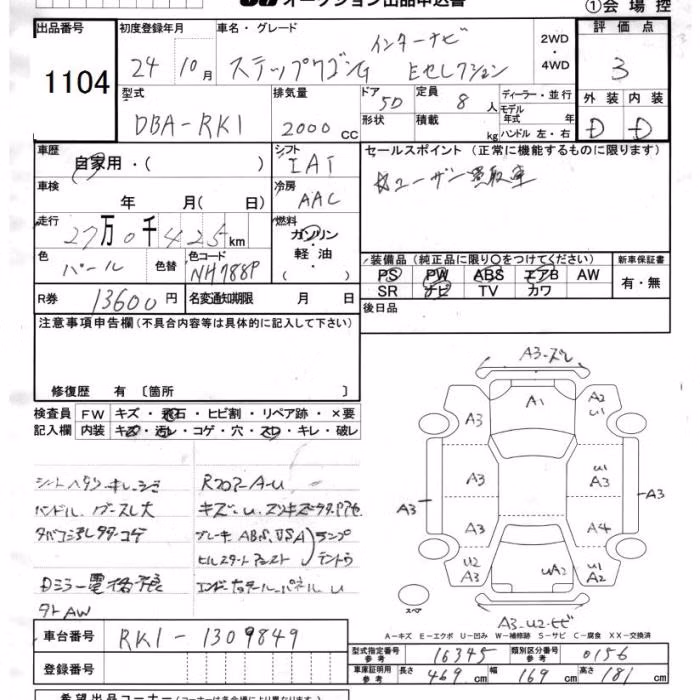 オークション出品申込書
①会場控
出品番号 初度登録年月 車名・グレード 評価点
1104 24 10月 ステップワゴンG インターナビ Eセレクション 2WD・4WD 3
型式 排気量 ドア 5D 定員 8人 ディーラー・並行 外装 内装
DBA-RK1 2000cc 形状 積載 kg モデル年式 年 ハンドル 左・右 D D
車歴 自家用・( ) シフト IAT セールスポイント(正常に機能するものに限ります)
車検 年 月( 日) 冷房 AAC ユーザー買取車
走行 27万0千425km 燃料 ガソリン・軽油・( )
色 パール 色替 色コード NH788P
装備品(純正品に限り○をつけてください) 新車保証書
PS PW ABS エアB AW 有・無
SR ナビ TV カワ
R券 13600円 名変通知期限 月 日
後日品
注意事項申告欄(不具合内容等は具体的に記入して下さい)
修復歴 有〔箇所 〕
検査員記入欄 FW キズ・飛石・ヒビ割・リペア跡・×要
内装 キズ・汚レ・コゲ・穴・スレ・キレ・破レ
シートヘタリ キレ・シミ RフロアーA-U
ハンドル
ブレーキ ABS,VSA ランプ
ヒルスタートアシスト テントウ
Dミラー電格不良
タトAW
A3-ズレ
A1
A3 A2 U1
A3 U1 A3
A3 A3
A3 A4
U2 A3 UA2 U1 A2
スペア
A3-U2-ヒビ
A-キズ E-エクボ U-凹み W-補修跡 S-サビ C-腐食 XX-交換済
車台番号 RK1-1309849
型式指定番号 参考 16345 類別区分番号 参考 0156
登録番号
車庫証明用 参考 長さ 469cm 幅 169cm 高さ 181cm
希望出品コーナー